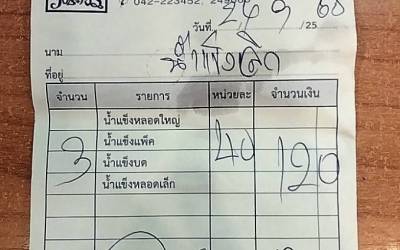 042-223452,
วันที่ 2,4 9 /25 68
นาม น้ำแข็งเล็ก
ที่อยู่
จำนวน รายการ หน่วยละ จำนวนเงิน
น้ำแข็งหลอดใหญ่
3 น้ำแข็งแพ็ค 40 120
น้ำแข็งบด
น้ำแข็งหลอดเล็ก